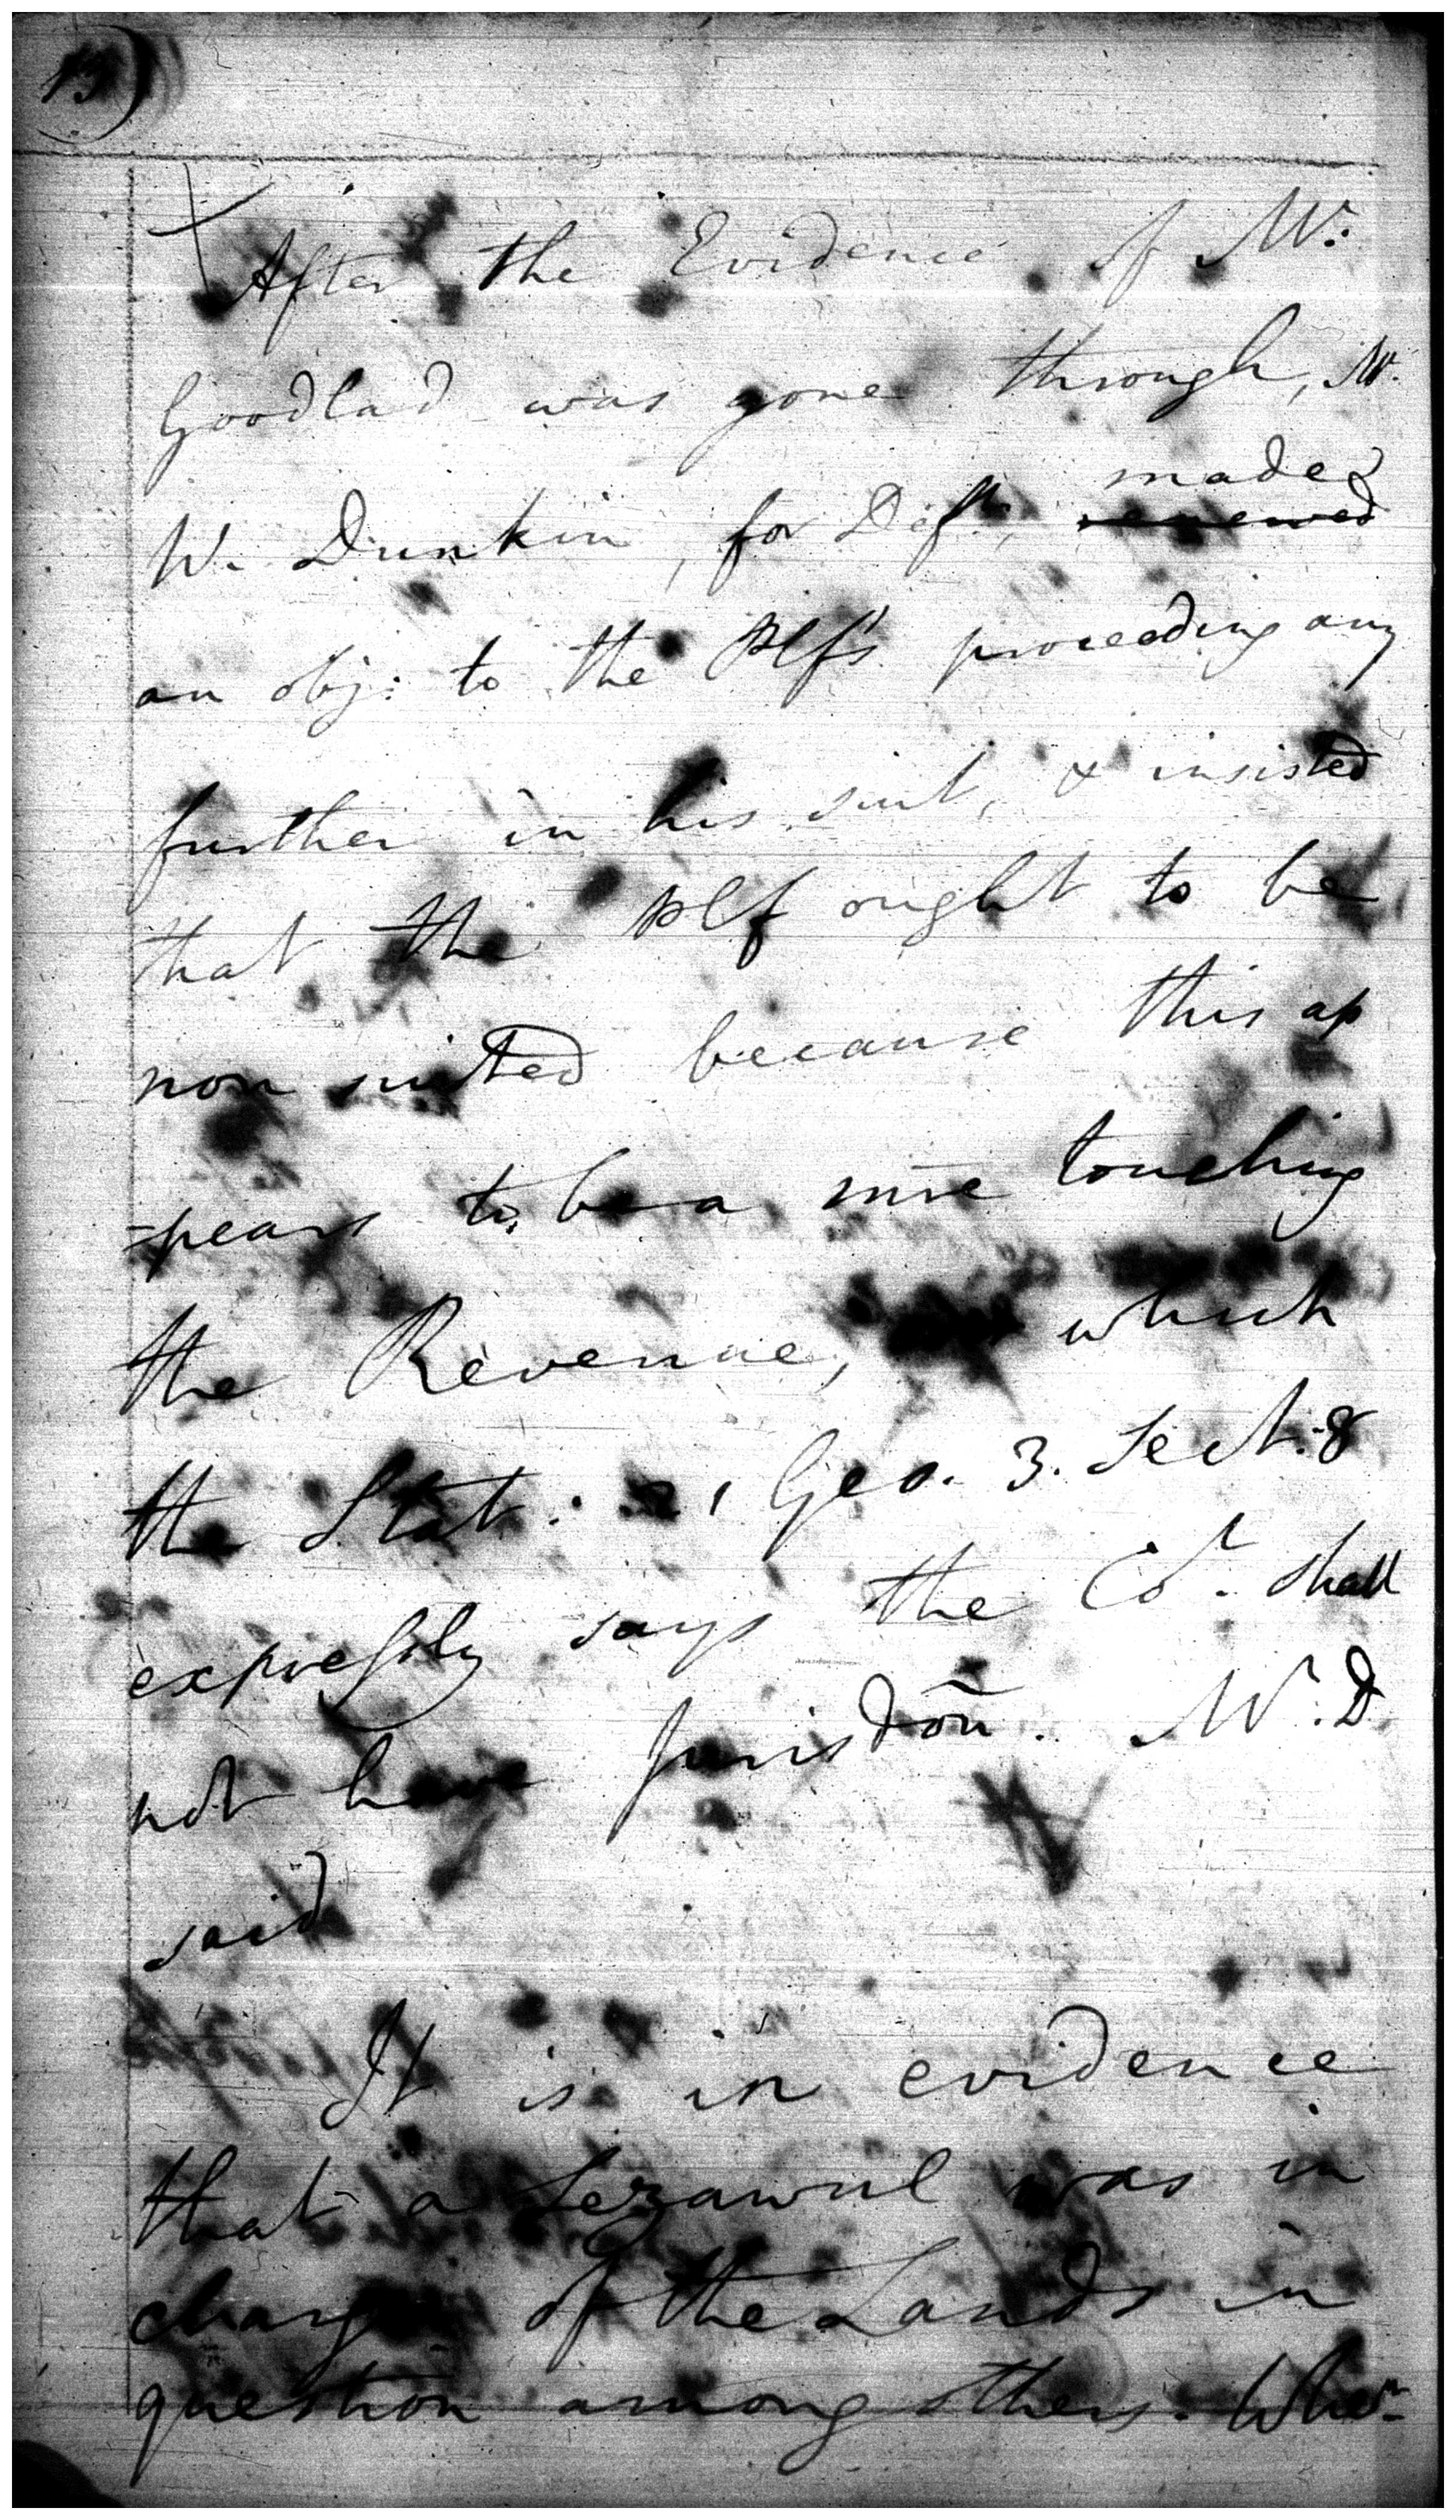 After the Evidence of Mr.
Goodlad was gone through, Mr.
W. Dunkin, for Defts, made
renewed
an obj: to the Plf's proceeding any
further in his suit, & insisted
that the Plf ought to be
non suited because this ap
=pears to be a  touching
the Revenue, which
the Stat: 21 Geo. 3. Sect. 8
expressly says the Cot. shall
not have Jurisdon. Mr. D
said
It is in evidence
that a Sezawul was in
charge of the Lands in
question among others.